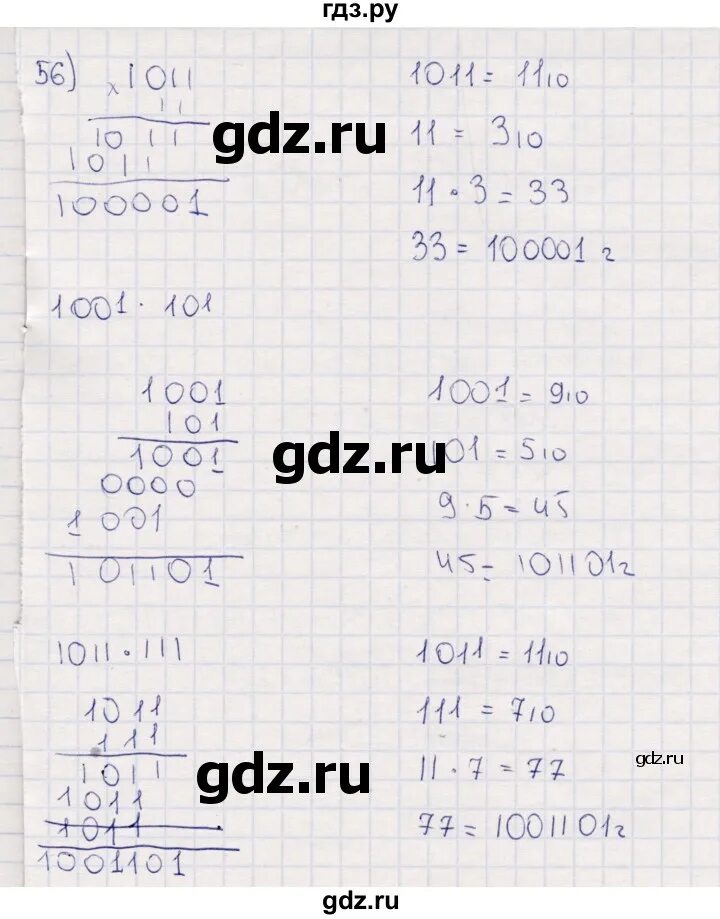 гдз.ру
56) x 1011
11
1011
1011
100001
1011 = 11₁₀
11 = 3₁₀
11 · 3 = 33
33 = 100001₂
gdz.ru
1001 · 101
1001
101
1001
0000
1001
101101
1001 = 9₁₀
101 = 5₁₀
9 · 5 = 45
45 = 101101₂
gdz.ru
1011 · 111
1011
111
1011
1011
1011
1001101
1011 = 11₁₀
111 = 7₁₀
11 · 7 = 77
77 = 1001101₂
gdz.ru
gdz.ru
gdz.ru